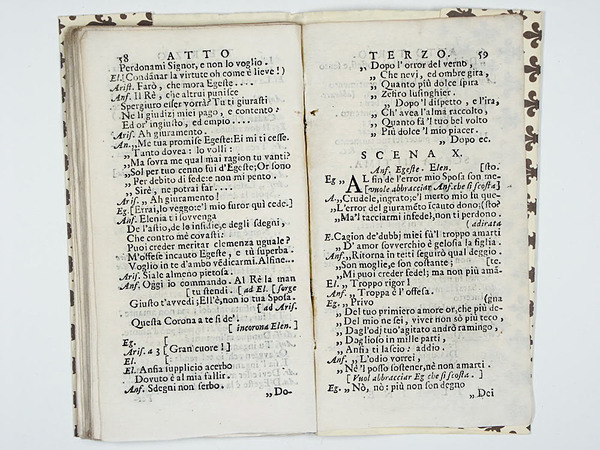 58 ATTO
Perdonami Signor, e non lo voglio.
El. Condânar la virtute oh come è lieve!)
Arist. Farò, che mora Egeste....
Anf. Il Rè, che altrui punisce
Sperguro esser vorrà? Tù ti giurasti
Ne li giudizj miei pago, e contento:
Ed or' ingiusto, ed empio....
Aris. Ah giuramento.
An. „Me tua promise Egeste: Ei mi ti cesse.
„ Tanto dovea: lo volli:
„Ma sovra me qual mai ragion tu vanti?
„Sol per tuo cenno fui d'Egeste; Or sono
„ Per debito di fede: e non mi pento.
„ Sirè, ne potrai far....
Aris. „ Ah giuramento!
Eg. [Errai, lo veggo: e'l mio furor quì cede.]
Anf. Elenia ti sovvenga
De l'astio, de le insidie, e degli sdegni,
Che contro mè covasti:
Puoi creder meritar clemenza uguale?
M'offese incauto Egeste, e tù superba.
Voglio in te d'ambo vēdicarmi. Alfine...
Aris. Siale almeno pietosa.
Anf. Oggi io commando. Al Rè la man
tu stendi. [ad El. [sorge
Giusto t'avvedi; Ell'è, non io tua Sposa.
[ ad Aris.
Questa Corona a te si de'.
[ incorona Elen. ]
Eg.
Aris. a 3 [ Gran cuore! ]
El.
El. Ansia supplicio acerbo
Dovuto è al mia fallir.
Anf. Sdegni non serbo.
„Do-
TERZO. 59
„ Dopo l'orror del verno,
„ Che nevi, ed ombre gira,
„ Quanto più dolce spira
„ Zefiro lusinghier.
„ Dopo'l dispetto, e l'ira,
„ Ch' avea l'alma raccolto,
„ Quanto fà'l tuo bel volto
„ Più dolce 'l mio piacer.
„ Dopo ec.
SCENA X.
Anf. Egeste. Elen. [sto.
Eg „ AL fin de l'error mio Sposa son ne-
[vuole abbracciar Anf. che si scosta]
A. „Crudele, ingrato; e'l merto mio lu que-
„L'error del giuramēto īcauto dono; (sto?
„Ma'l tacciarmi infedel, non ti perdono.
( adirata
E. Cagion de'dubbj miei fù'l troppo amarti
„ D' amor sovverchio è gelosia la figlia.
Anf. „Ritorna in tetti seguirò qual deggio.
„Son moglie, e son costante; [te.
„Mi puoi creder fedel; ma non più amā-
El. „ Troppo rigor!
Anf. „ Troppa è l'offesa.
Eg. „ Privo (gna
„ Del tuo primiero amore or, che più de-
„ Del mio ne sei, viver non sò più teco,
„ Dagl'odj tuo'agitato andrò ramingo,
„ Doglioso in mille parti,
„ Ansia ti lascio: addio.
Anf. „ L'odio vorrei,
„ Nè'l posso sostener, nè non amarti.
[ Vuol abbracciar Eg che si scosta. ]
Eg. „ Nò, nò: più non son degno
„ Dei